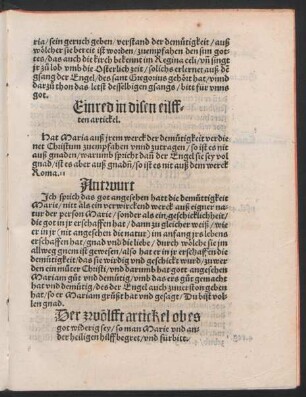 ria/ sein geruch geben/ verstand der demütigkeit/ auß
wölcher sie bereit ist worden/ zuempfahen den sun got-
tes/ das auch die kirch bekent im Regina celi/ vñ singt
jr zů lob vmb die Osterlich zeit/ solichs erlernet auß dē
gsang der Engel/ des sant Gregorius gehört hat/ vnnd
dar zů thon das letst desselbigen gsangs/ bitt für vnns
got.
Einred in disen eilff-
ten artickel.
Hat Maria auß jrem werck der demütigkeit verdie
net Christum zuempfahen vnnd zutragen/ so ist es nit
auß gnaden/ warumb spicht dañ der Engel sie sey vol
gnad/ ist es aber auß gnadñ/ so ist es nit auß dem werck
Roma. 11
Antwurt
Ich sprich das got angesehen hatt die demütigkeit
Marie/ nitt als ein verwürckend werck auß eigner na-
tur der person Marie/ sonder als ein geschicklichheit/
die got in jr erschaffen hat/ dann zu gleicher weiß/ wie
er in jr (nit angesehen die natur) im anfang jrs lebens
erschaffen hat/ gnad vnd die liebe/ durch wölche sie jm
allweg gnem ist gewesen/ also hat er in jr erschaffen die
demütigkeit/ das sie wirdig vnd geschickt wurd/ zu wer
den ein můter Christi/ vnd darumb hat gott angesehen
Mariam gůt vnd demütig/ vmb das er sie gůt gemacht
hat vnd demütig/ des der Engel auch zum ersten geben
hat/ so er Mariam grüßt hat vnd gesagt/ Du bist vol-
len gnad.
Der zwölfft artickel ob es
got widerig sey/ so man Marie vnd an-
der heiligen hilff begret/ vnd fürbitt.